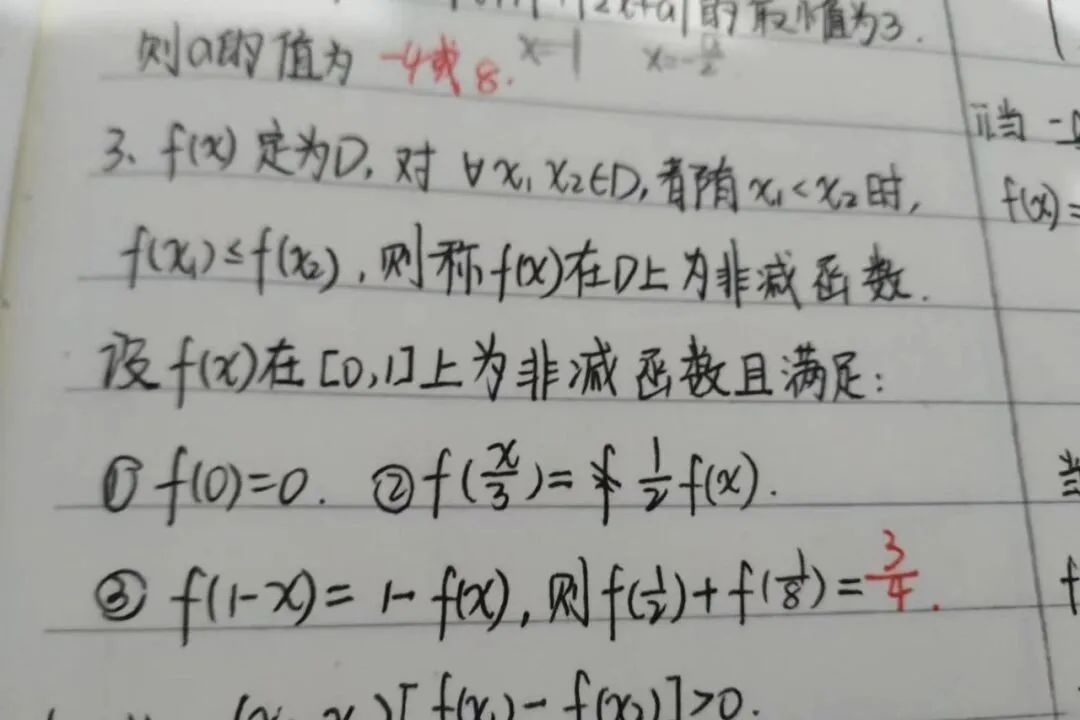 |2x+a|的最小值为3.
则a的值为 -4或8. x=1 x=-a/2
3、f(x)定为D,对∀x₁x₂∈D,看随x₁<x₂时,
f(x₁)≤f(x₂),则称f(x)在D上为非减函数.
设f(x)在[0,1]上为非减函数且满足:
① f(0)=0. ② f(x/3)= 1/2 f(x).
③ f(1-x)= 1- f(x),则f(1/2)+f(1/8)=3/4.
)[f(x₁)-f(x₂)]>0.
ii当
f(x)=
当
f